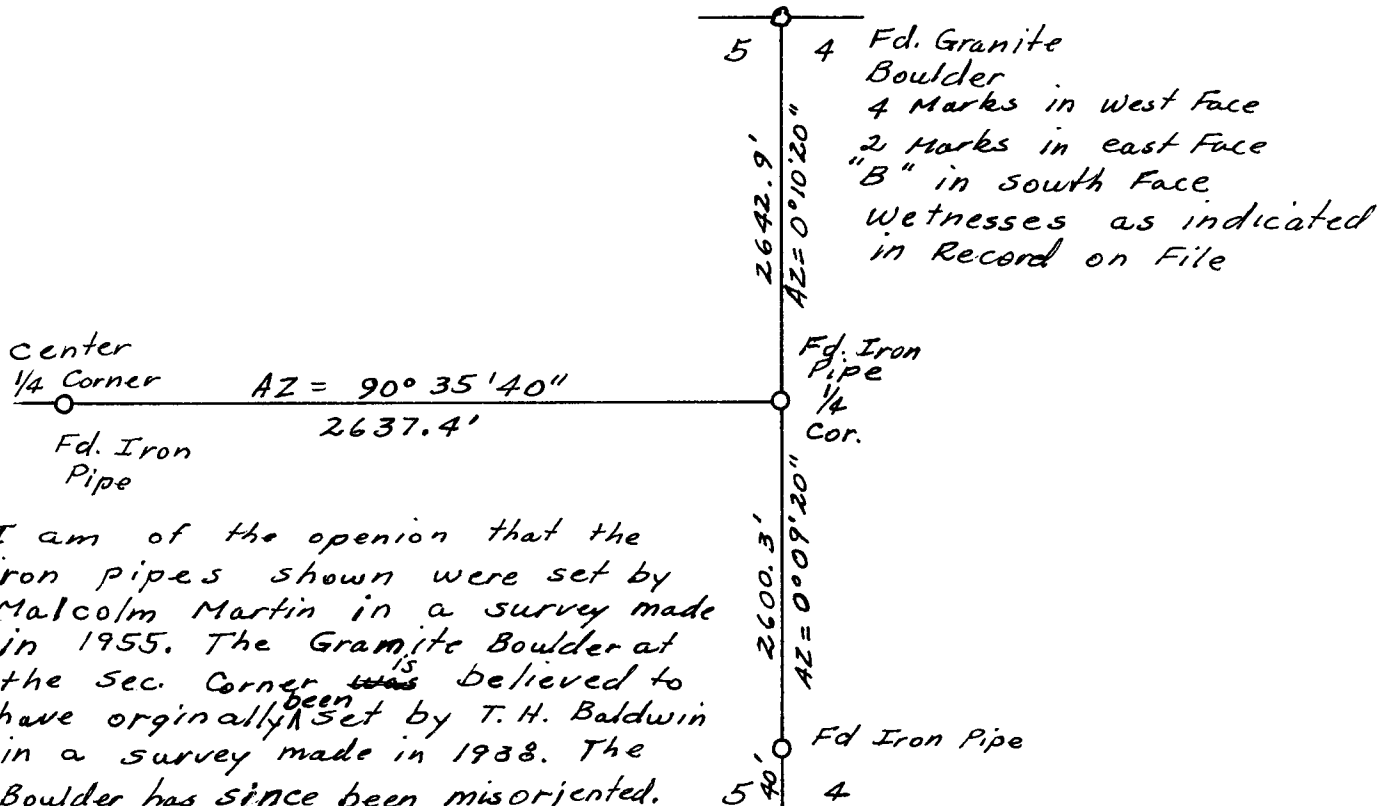 5 4 Fd. Granite
Boulder
4 Marks in West Face
2 Marks in east Face
"B" in south Face
wetnesses as indicated
in Record on File
2642.9'
AZ= 0°10'20"
Center
1/4 Corner
Fd. Iron
Pipe
AZ = 90° 35' 40"
2637.4'
Fd. Iron
Pipe
1/4
Cor.
2600.3'
AZ = 0°09'20"
I am of the openion that the
iron pipes shown were set by
Malcolm Martin in a survey made
in 1955. The Gramite Boulder at
the Sec. Corner was is believed to
have orginally been set by T. H. Baldwin
in a survey made in 1938. The
Boulder has since been misorjented.
Fd Iron Pipe
40'
5 4